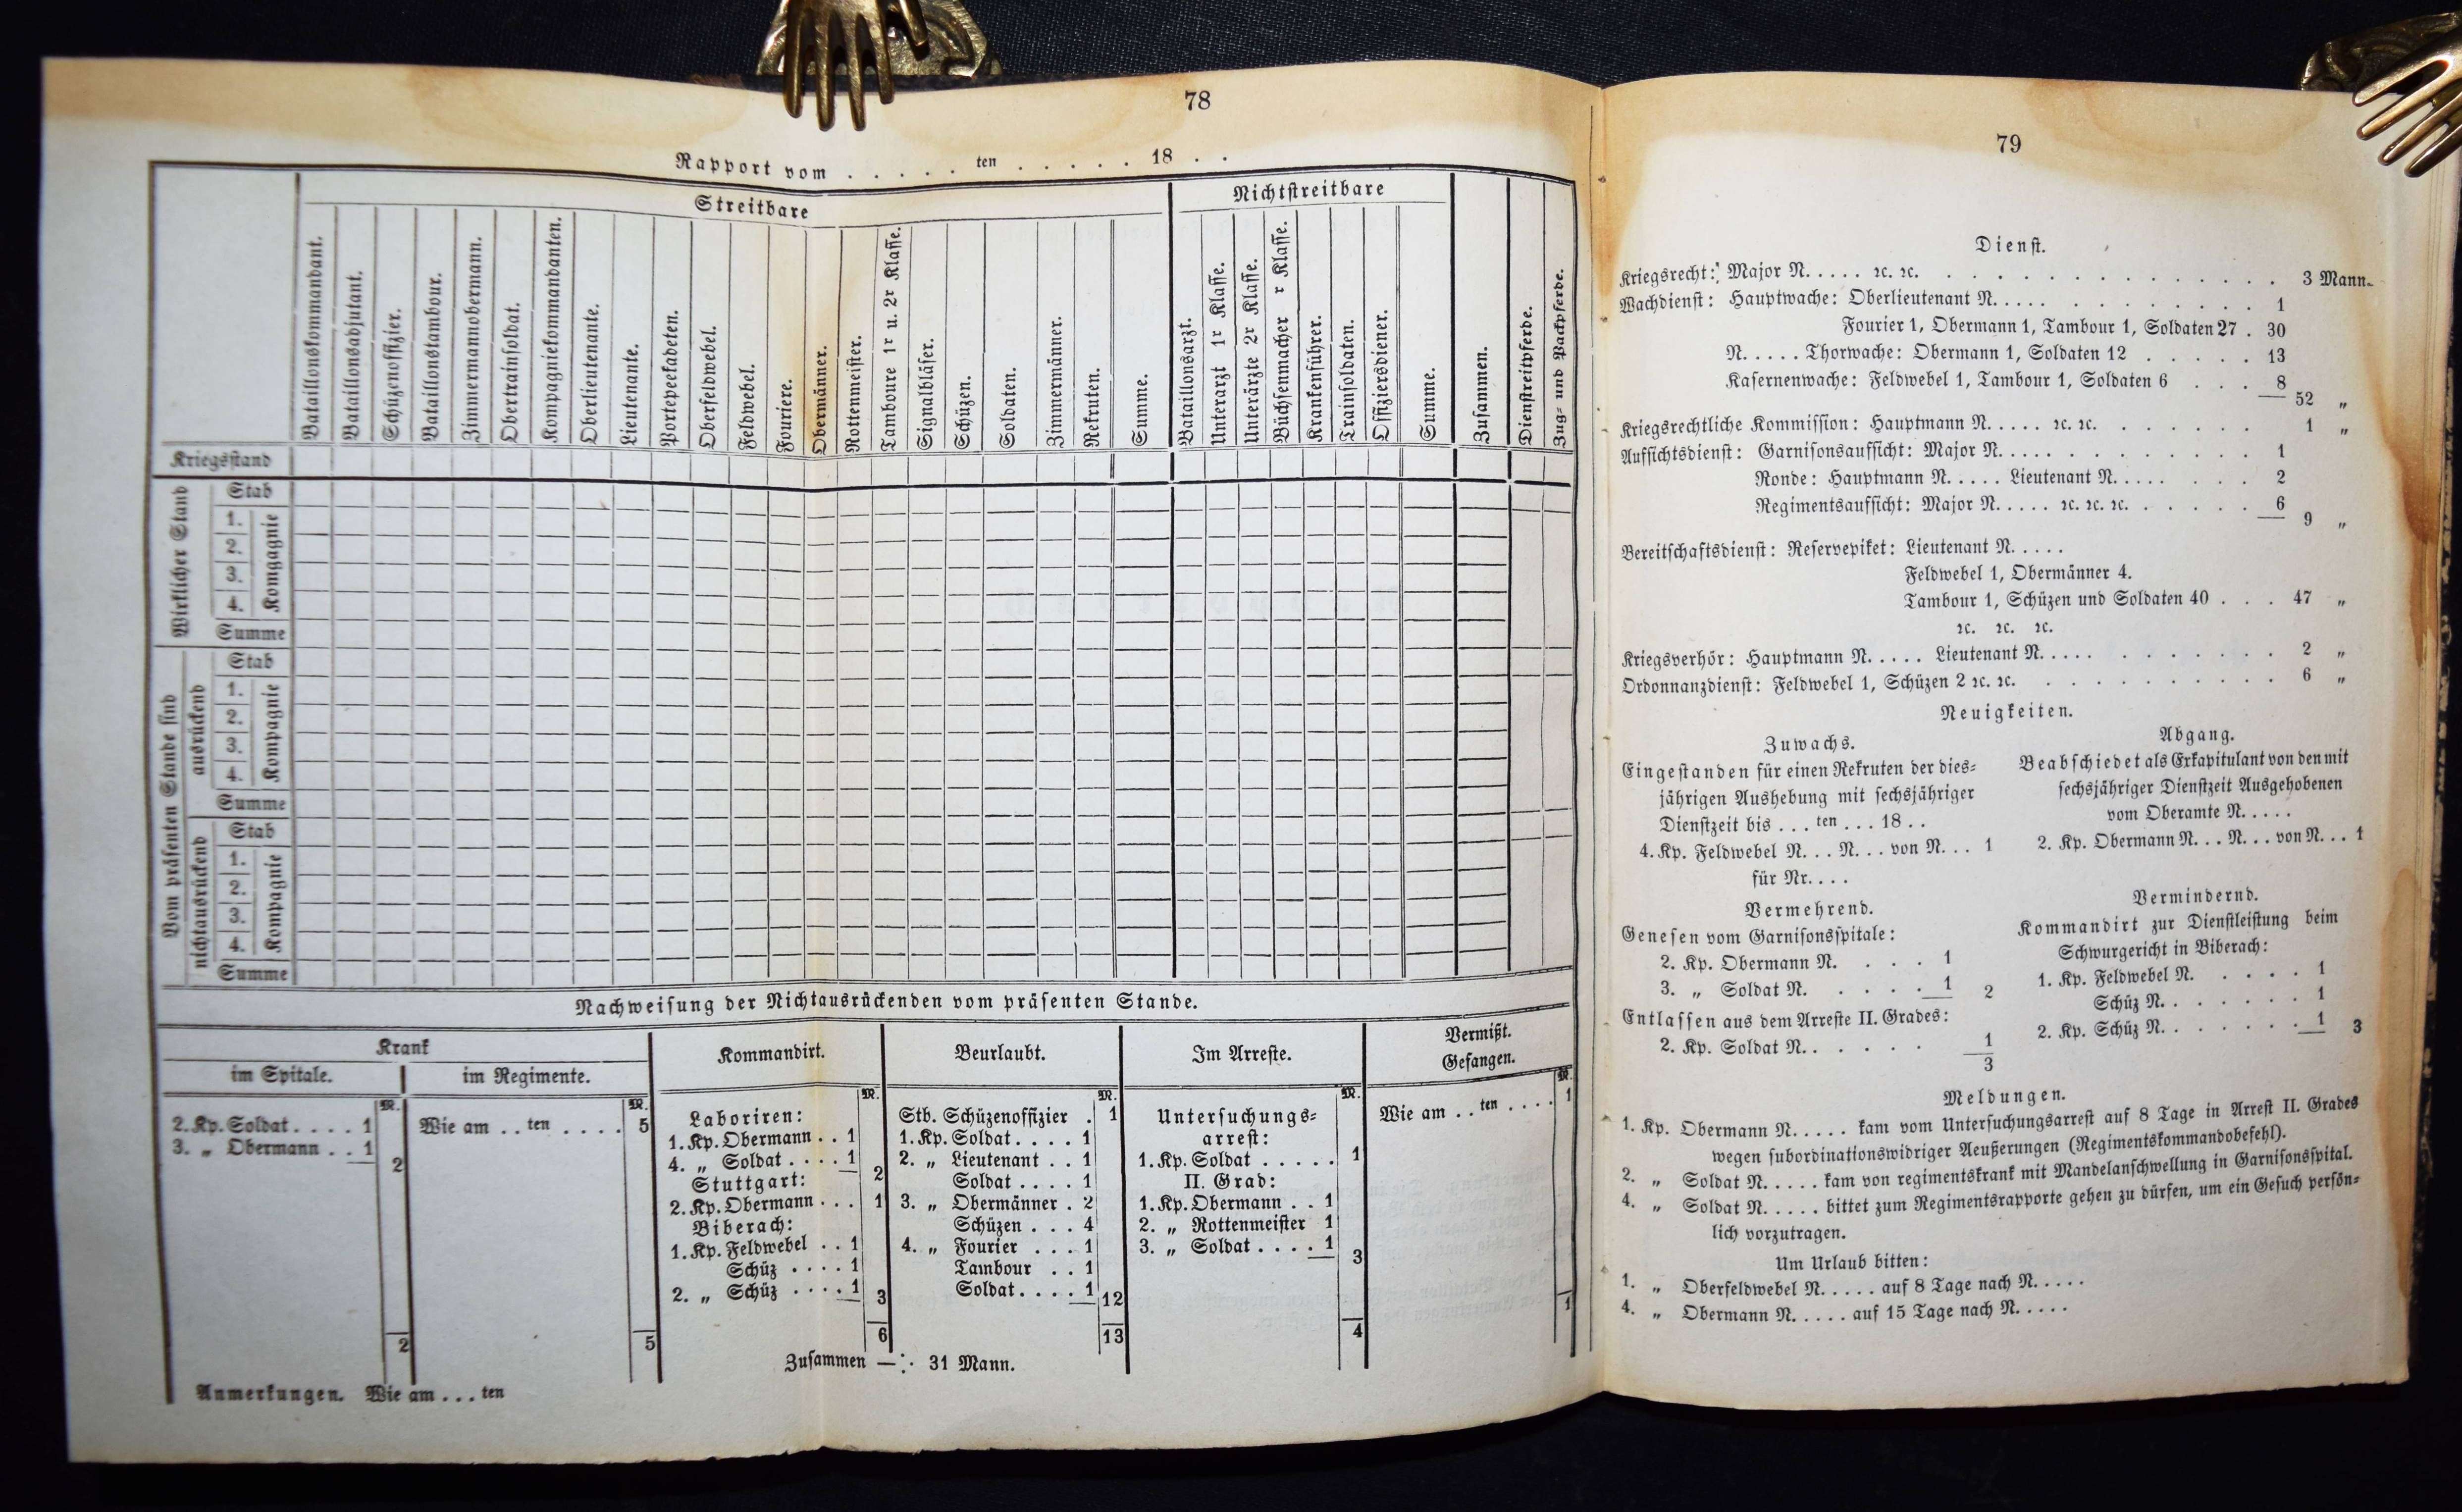 78
Rapport vom . . . . . ten . . . . . 18 . .
Streitbare
Nichtstreitbare
Bataillonskommandant.
Bataillonsadjutant.
Schüzenoffizier.
Bataillonstambour.
Zimmermannobermann.
Obertrainsoldat.
Kompagniekommandanten.
Oberlieutenante.
Lieutenante.
Portepeekadeten.
Oberfeldwebel.
Feldwebel.
Fouriere.
Obermänner.
Rottenmeister.
Tamboure 1r u. 2r Klasse.
Signalbläser.
Schüzen.
Soldaten.
Zimmermänner.
Rekruten.
Summe.
Bataillonsarzt.
Unterarzt 1r Klasse.
Unterärzte 2r Klasse.
Büchsenmacher r Klasse.
Krankenführer.
Trainsoldaten.
Offiziersdiener.
Summe.
Zusammen.
Dienstreitpferde.
Zug= und Packpferde.
Kriegsstand
Wirklicher Stand
Stab
1.
2.
3.
4.
Komgagnie
Summe
Vom präsenten Stande sind
ausrückend
Stab
1.
2.
3.
4.
Kompagnie
Summe
nichtausrückend
Stab
1.
2.
3.
4.
Kompagnie
Summe
Nachweisung der Nichtausrückenden vom präsenten Stande.
Krank
im Spitale.
M.
2. Kp. Soldat . . . . 1
3. „ Obermann . . 1
2
2
im Regimente.
M.
Wie am . . ten . . . . 5
5
Kommandirt.
M.
Laboriren:
1. Kp. Obermann . . 1
4. „ Soldat . . . . 1
2
Stuttgart:
2. Kp. Obermann . . . 1
Biberach:
1. Kp. Feldwebel . . 1
Schüz . . . . 1
2. „ Schüz . . . . 1
3
6
Beurlaubt.
M.
Stb. Schüzenoffizier . 1
1. Kp. Soldat . . . . 1
2. „ Lieutenant . . 1
Soldat . . . . 1
3. „ Obermänner . 2
Schüzen . . . 4
4. „ Fourier . . . 1
Tambour . . 1
Soldat . . . . 1
12
13
Im Arreste.
M.
Untersuchungs=
arrest:
1. Kp. Soldat . . . . . 1
II. Grad:
1. Kp. Obermann . . 1
2. „ Rottenmeister 1
3. „ Soldat . . . . 1
3
4
Vermißt.
Gefangen.
M.
Wie am . . ten . . . . 1
1
Zusammen —:· 31 Mann.
Anmerkungen. Wie am . . . ten
79
Dienst.
Kriegsrecht: Major N. . . . . ꝛc. ꝛc. . . . . . . . . . . . . . 3 Mann.
Wachdienst: Hauptwache: Oberlieutenant N. . . . . . . . . . . . 1
Fourier 1, Obermann 1, Tambour 1, Soldaten 27 . 30
N. . . . . Thorwache: Obermann 1, Soldaten 12 . . . . . 13
Kasernenwache: Feldwebel 1, Tambour 1, Soldaten 6 . . . 8
52 „
Kriegsrechtliche Kommission: Hauptmann N. . . . . ꝛc. ꝛc. . . . . . . 1 „
Aufsichtsdienst: Garnisonsaufsicht: Major N. . . . . . . . . . . . . 1
Ronde: Hauptmann N. . . . . Lieutenant N. . . . . . . . 2
Regimentsaufsicht: Major N. . . . . ꝛc. ꝛc. ꝛc. . . . . . 6
9 „
Bereitschaftsdienst: Reservepiket: Lieutenant N. . . . .
Feldwebel 1, Obermänner 4.
Tambour 1, Schüzen und Soldaten 40 . . . 47 „
ꝛc. ꝛc. ꝛc.
Kriegsverhör: Hauptmann N. . . . . Lieutenant N. . . . . . . . . . . . 2 „
Ordonnanzdienst: Feldwebel 1, Schüzen 2 ꝛc. ꝛc. . . . . . . . . . . 6 „
Neuigkeiten.
Zuwachs.
Eingestanden für einen Rekruten der dies=
jährigen Aushebung mit sechsjähriger
Dienstzeit bis . . . ten . . . 18 . .
4. Kp. Feldwebel N. . . N. . . von N. . . 1
für Nr. . . .
Vermehrend.
Genesen vom Garnisonsspitale:
2. Kp. Obermann N. . . . 1
3. „ Soldat N. . . . . 1
2
Entlassen aus dem Arreste II. Grades:
2. Kp. Soldat N. . . . . . 1
3
Abgang.
Beabschiedet als Exkapitulant von den mit
sechsjähriger Dienstzeit Ausgehobenen
vom Oberamte N. . . . .
2. Kp. Obermann N. . . N. . . von N. . . 1
Vermindernd.
Kommandirt zur Dienstleistung beim
Schwurgericht in Biberach:
1. Kp. Feldwebel N. . . . . 1
Schüz N. . . . . . . 1
2. Kp. Schüz N. . . . . . . 1
3
Meldungen.
1. Kp. Obermann N. . . . . kam vom Untersuchungsarrest auf 8 Tage in Arrest II. Grades
wegen subordinationswidriger Aeußerungen (Regimentskommandobefehl).
2. „ Soldat N. . . . . kam von regimentskrank mit Mandelanschwellung in Garnisonsspital.
4. „ Soldat N. . . . . bittet zum Regimentsrapporte gehen zu dürfen, um ein Gesuch persön=
lich vorzutragen.
Um Urlaub bitten:
1. „ Oberfeldwebel N. . . . . auf 8 Tage nach N. . . . .
4. „ Obermann N. . . . . auf 15 Tage nach N. . . . .